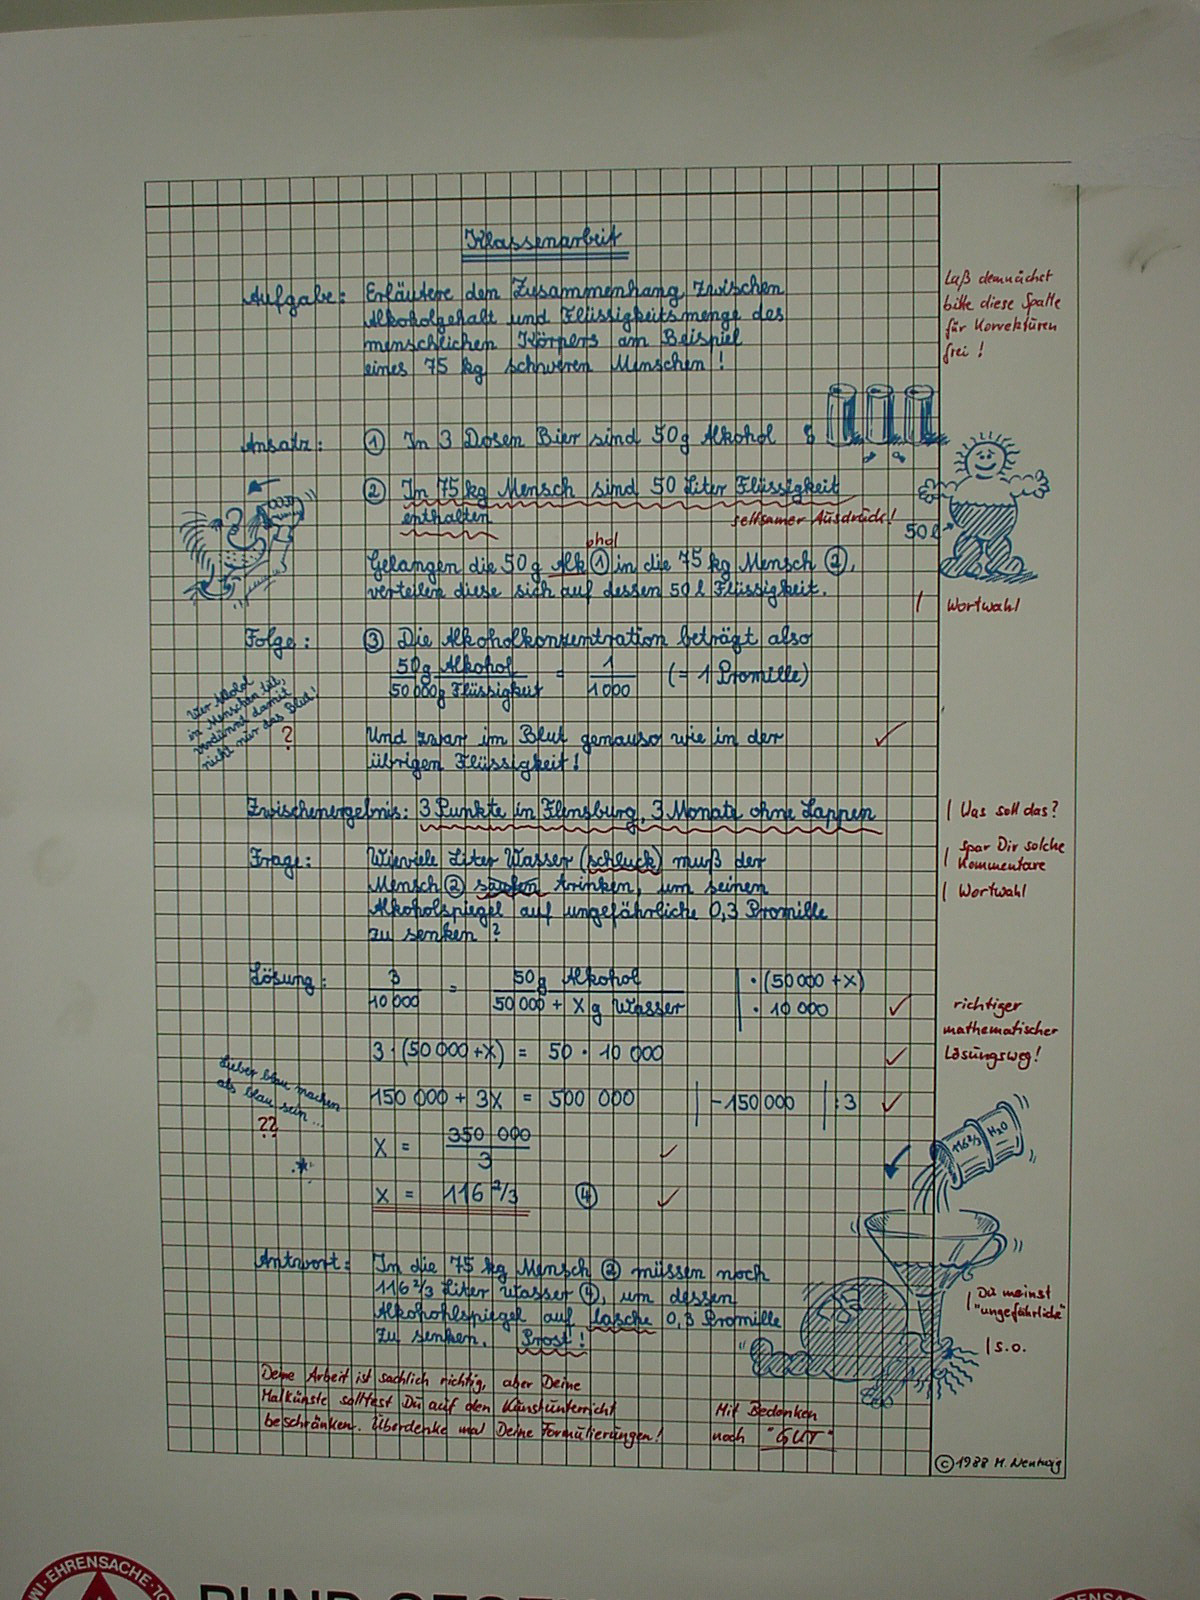 Klassenarbeit
Aufgabe: Erläutere den Zusammenhang zwischen
Alkoholgehalt und Flüssigkeitsmenge des
menschlichen Körpers am Beispiel
eines 75 kg schweren Menschen!
Laß demnächst
bitte diese Spalte
für Korrekturen
frei!
Ansatz: ① In 3 Dosen Bier sind 50g Alkohol
② In 75 kg Mensch sind 50 Liter Flüssigkeit
enthalten
seltsamer Ausdruck!
50 l
ohol
Gelangen die 50 g Alk ① in die 75 kg Mensch ②,
verteilen diese sich auf dessen 50 l Flüssigkeit.
| Wortwahl
Folge: ③ Die Alkoholkonzentration beträgt also
50g Alkohol / 50 000g Flüssigkeit = 1 / 1000 (= 1 Promille)
Wer Alkohol
in Menschen füllt,
verdünnt damit
nicht nur das Blut!
?
Und zwar im Blut genauso wie in der
übrigen Flüssigkeit!
Zwischenergebnis: 3 Punkte in Flensburg, 3 Monate ohne Lappen
| Was soll das?
Frage: Wieviele Liter Wasser (schluck) muß der
Mensch ② saufen trinken, um seinen
Alkoholspiegel auf ungefährliche 0,3 Promille
zu senken?
| Spar Dir solche
Kommentare
| Wortwahl
Lösung: 3 / 10 000 = 50g Alkohol / 50 000 + X g Wasser | · (50 000 + X)
| · 10 000
richtiger
mathematischer
Lösungsweg!
3 · (50 000 + X) = 50 · 10 000
Lieber blau machen
als blau sein...
??
150 000 + 3X = 500 000 | - 150 000 | : 3
X = 350 000 / 3
X = 116 2/3 ④
116 2/3 H2O
Antwort: In die 75 kg Mensch ② müssen noch
116 2/3 Liter Wasser ④, um dessen
Alkohohlspiegel auf lasche 0,3 Promille
zu senken. Prost!
| Du meinst
"ungefährliche"
| s.o.
Deine Arbeit ist sachlich richtig, aber Deine
Malkünste solltest Du auf den Kunstunterricht
beschränken. Überdenke mal Deine Formulierungen!
Mit Bedenken
noch "GUT"
© 1988 M.
EHRENSACHE